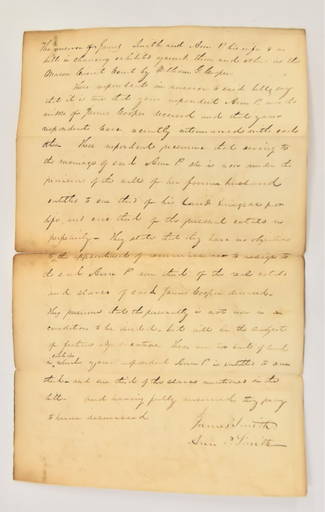 The answer of James Smith and Ann P. his wife to a
bill in chancery exhibited against them and others in the
Mason Circuit Court by William G. Cooper
These respondents in answer to said bill, say
that it is true that your respondent Ann P. was the
widow of James Cooper deceased and that your
respondents have recently intermarried with each
other. These respondents presume that owing to
the marriage of said Ann P. she is now under the
provisions of the will of her former husband
entitled to one third of his land during her
life and one third of the personal estate in
perpetuity. They state that they have no objections
to the appointment of commissioners to assign to
the said Ann P. one third of the real estate
and slaves of said James Cooper deceased.
They presume that the personalty is not now in a
condition to be divided, but will be the subject
of future adjustment. There are no
which your respondent Ann P. is entitled to one
third and one third of the slaves mentioned in the
bill. And having fully answered they pray
to be hence dismissed
James Smith
Ann P. Smith